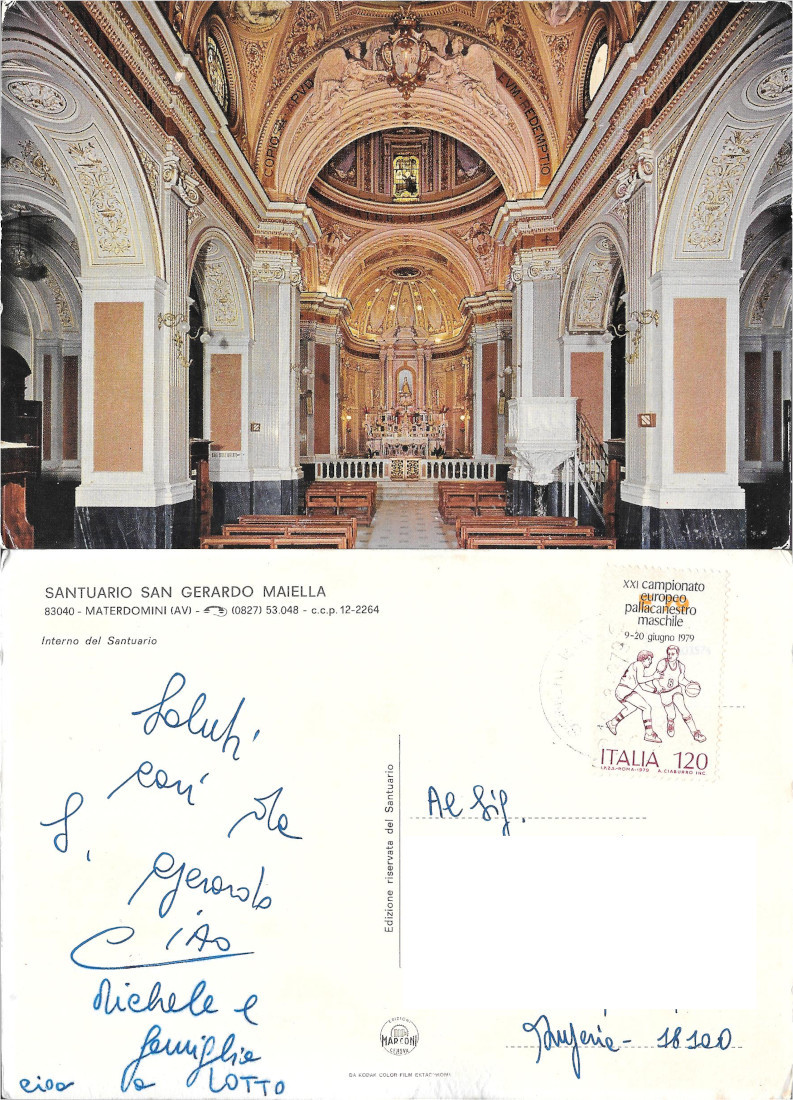 COPIOSA APVD
EVM REDEMPTIO
SANTUARIO SAN GERARDO MAIELLA
83040 - MATERDOMINI (AV) - (0827) 53.048 - c.c.p. 12-2264
Interno del Santuario
XXI campionato
europeo
pallacanestro
maschile
9-20 giugno 1979
8
ITALIA 120
I.P.Z.S.-ROMA-1979 A. CIABURRO INC.
Saluti
cari da
S. Gerardo
CIAO
Michele e
famiglia
LOTTO
Edizione riservata del Santuario
Al Sig.
Imperia - 18100
EDIZIONI
MARCONI
GENOVA
DA KODAK COLOR FILM EKTACHROME